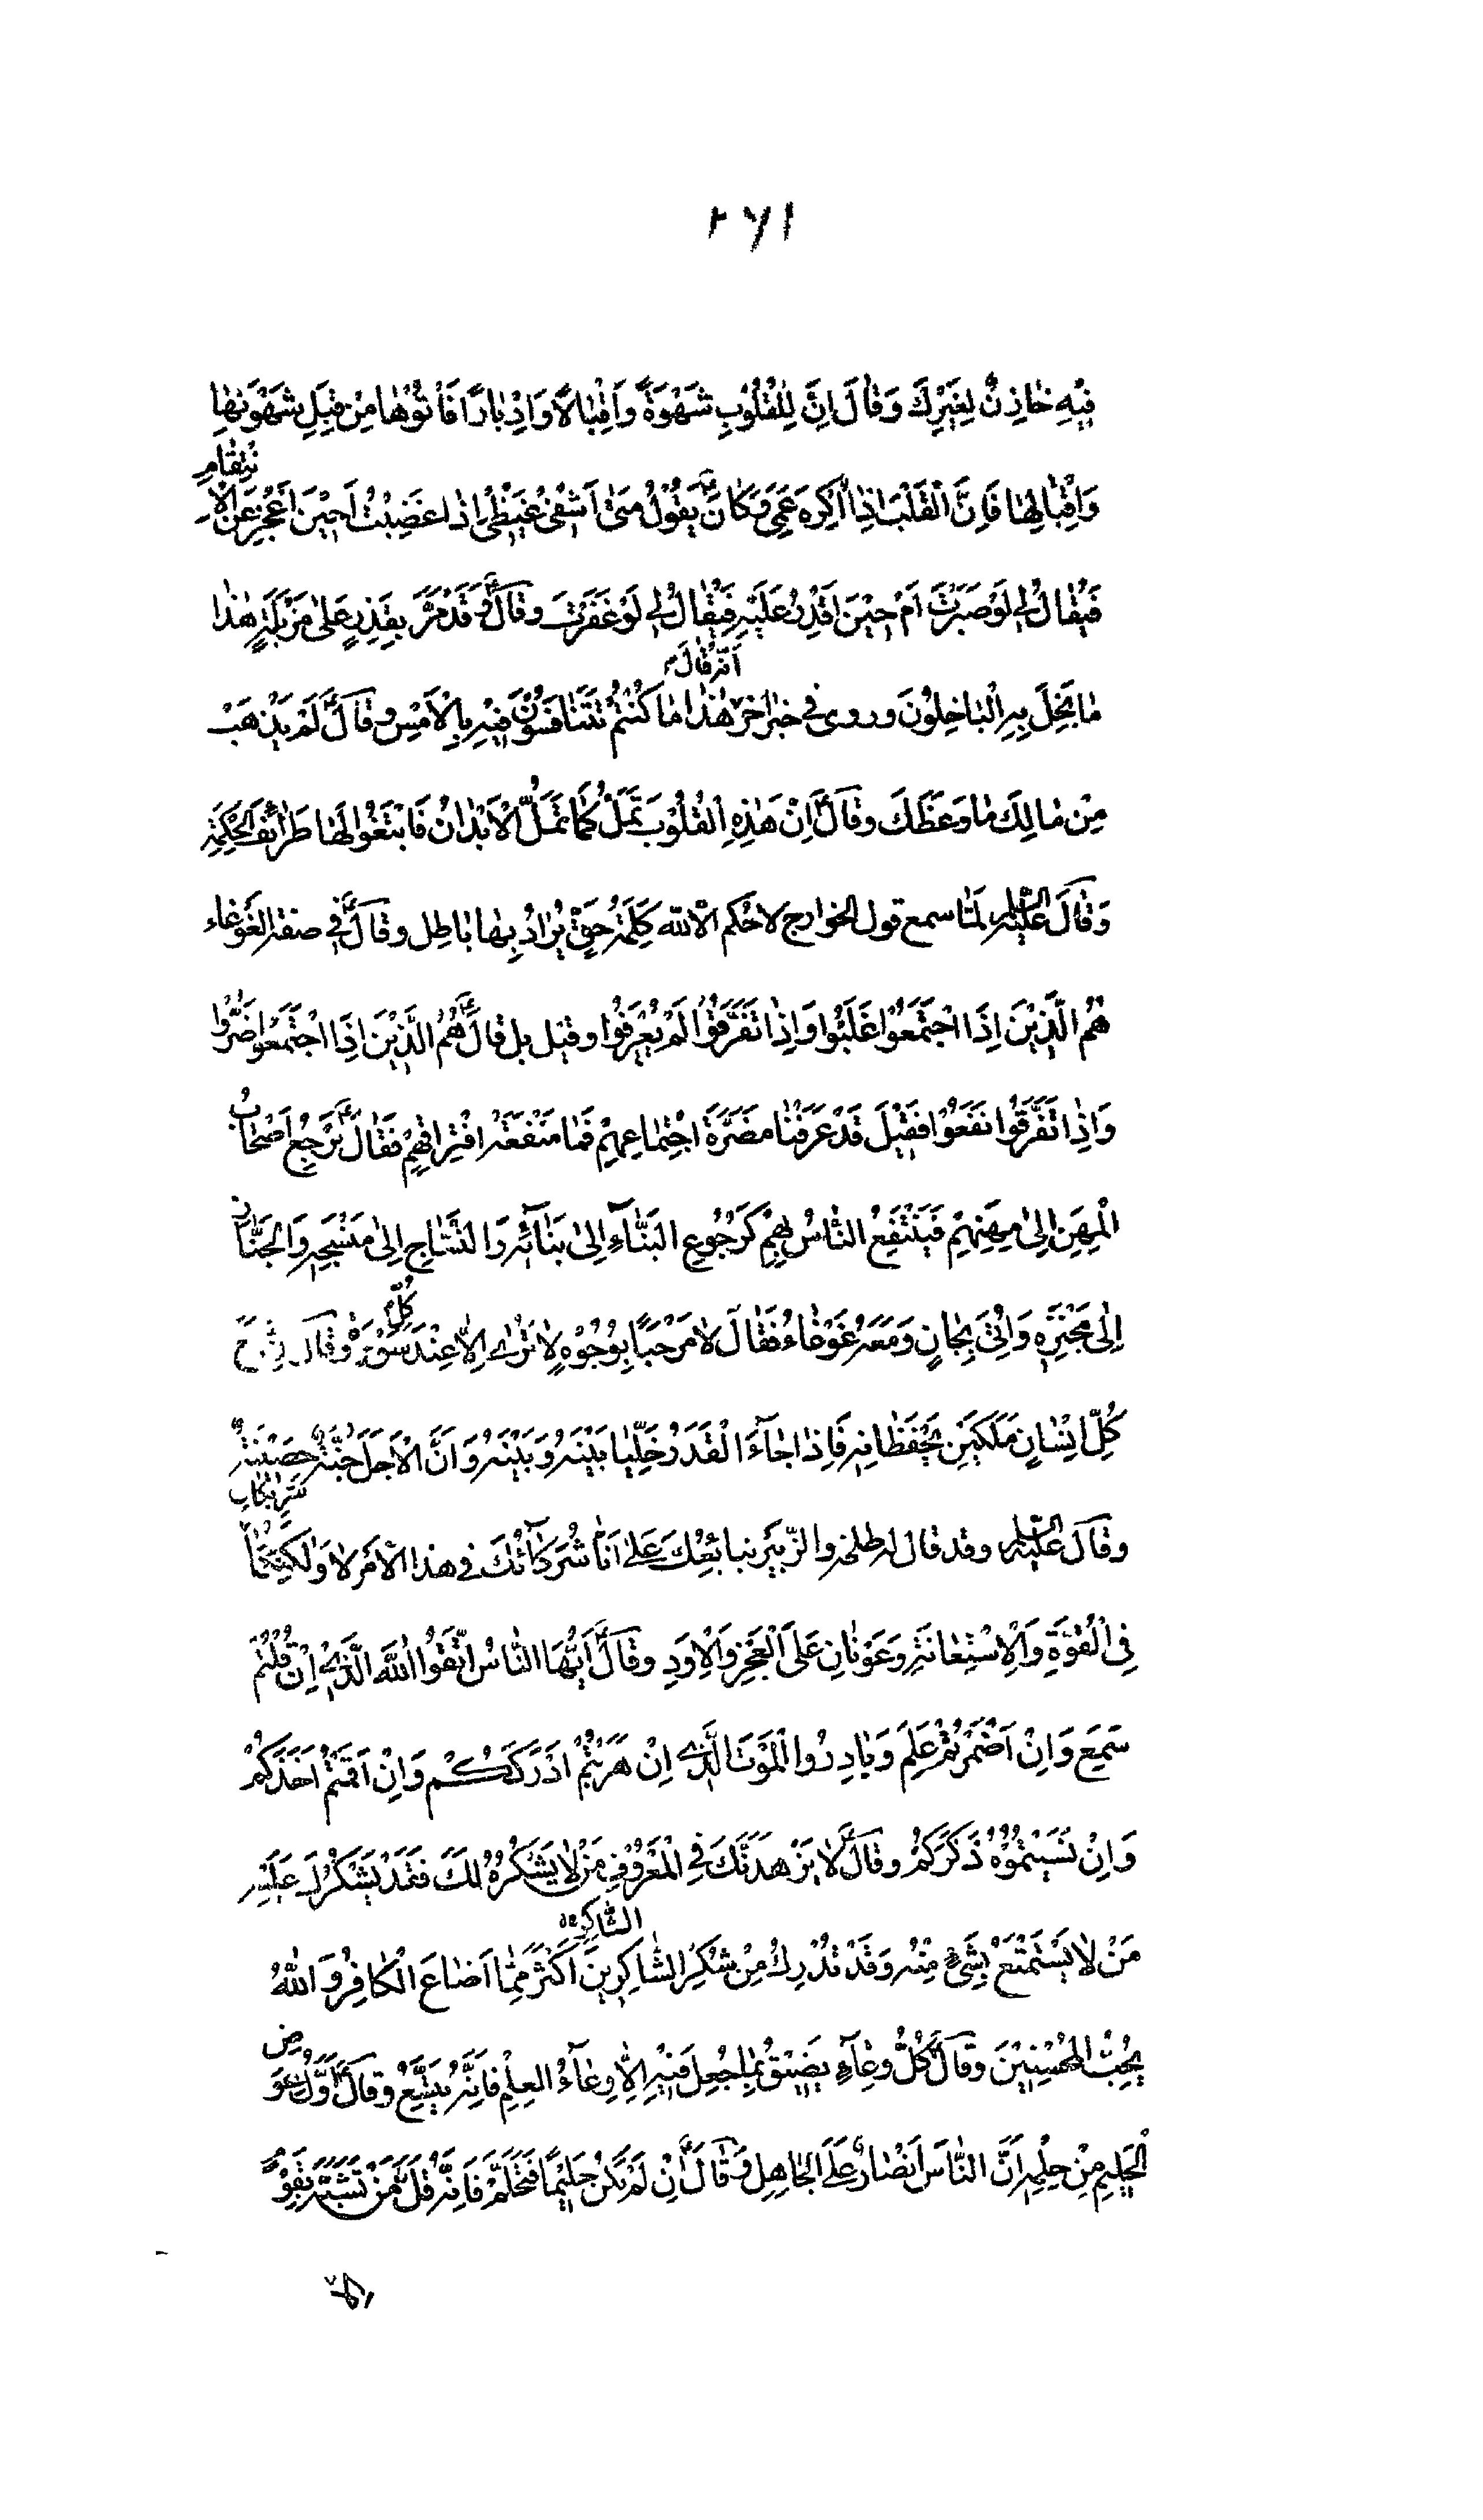 ٢٦١
فِيْهِ خٰازِنٌ لِغَيْرِكَ وَقٰالَ اِنَّ لِلْقُلُوْبِ شَهْوَةً وَاَقْبٰالاً وَاِدْبٰارًا فَأْتُوْهٰا مِنْ قِبَلِ شَهْوَتِهٰا
وَاِقْبٰالِهٰا فَاِنَّ الْقَلْبَ اِذٰا اُكْرِهَ عَمِىَ وَكٰانَ يَقُوْلُ مَتىٰ اَشْفىٖ غَيْظىٖ اِذٰا غَضِبْتُ اَحِيْنَ اَعْجِزُ عَنِ الْاِنْتِقٰامِ
فَيُقٰالُ لِى لَوْ صَبَرْتَ اَمْ حِيْنَ اَقْدِرُ عَلَيْهِ فَيُقٰالُ لِى لَوْ غَفَرْتَ وقٰالَ وَقَدْ مَرَّ بِقَذِرٍ عَلىٰ مَزْبَلَةٍ هٰذٰا
مٰا بَخِلَ بِهِ الْبٰاخِلُوْنَ وروى فى خبر اخر اَنَّهُ قٰالَ هٰذٰا مٰا كُنْتُمْ تَتَنٰافَسُوْنَ فِيْهِ بِالْاَمْسِ وقٰالَ لَمْ يَذْهَبْ
مِنْ مٰالِكَ مٰا وَعَظَكَ وقٰالَ اِنَّ هٰذِهِ الْقُلُوْبَ تَمَلُّ كَمٰا تَمَلُّ الْاَبْدٰانُ فَابْتَغُوْا لَهٰا طَرٰائِفَ الْحِكْمَةِ
وَقٰالَ عَلَيْهِ السَّلٰم لَمّٰا سمع قول الخوارج لا حكم الا لله كَلِمَةُ حَقٍّ يُرٰادُ بِهٰا بٰاطِل وقٰالَ فى صفة الغَوْغٰاء
هُمُ الَّذِيْنَ اِذَا اجْتَمَعُوْا غَلَبُوا وَاِذٰا تَفَرَّقُوْا لَمْ يُعْرَفُوْا وقيل بل قٰالَ هُمُ الَّذِيْنَ اِذَا اجْتَمَعُوْا ضَرُّوا
وَاِذٰا تَفَرَّقُوْا نَفَعُوْا فَقِيْلَ قَدْ عَرَفْنٰا مَضَرَّةَ اجْتِمٰاعِهِمْ فَمٰا مَنْفَعَةُ افْتِرٰاقِهِمْ فَقٰالَ يَرْجِعُ اَصْحٰابُ
الْمِهَنِ اِلىٰ مِهَنِهِمْ فَيَنْتَفِعُ النّٰاسُ بِهِمْ كَرُجُوْعِ الْبَنّٰاءِ اِلىٰ بَنٰائِهِ وَالنَّسّٰاجِ اِلىٰ مَنْسَجِهِ وَالْخَبّٰازِ
اِلىٰ مَخْبَزِهِ وَاُتِىَ بِجٰانٍ وَمَعَهُ غَوْغٰاءُ فَقٰالَ لٰا مَرْحَبًا بِوُجُوْهٍ لٰا تُرٰى اِلّٰا عِنْدَ كُلِّ سَوْءَةٍ وَقٰالَ اِنَّ مَعَ
كُلِّ اِنْسٰانٍ مَلَكَيْنِ يَحْفَظٰانِهِ فَاِذٰا جٰاءَ الْقَدَرُ خَلَّيٰا بَيْنَهُ وَبَيْنَهُ وَاِنَّ الْاَجَلَ جُنَّةٌ حَصِيْنَةٌ
وقٰالَ عَلَيْهِ السَّلٰم وقد قال له طلحة والزّبير نبايعُكَ عَلىٰ اَنّٰا شُرَكٰاؤُكَ فى هذا الْاَمْرِ لٰا وَلٰكِنَّكُمٰا شَرِيْكٰانِ
فِى الْقُوَّةِ وَالْاِسْتِعٰانَةِ وَعَوْنٰانِ عَلَى الْعَجْزِ وَالْاَوَدِ وقٰالَ اَيُّهَا النّٰاسُ اتَّقُوا اللّٰهَ الَّذِىْ اِنْ قُلْتُمْ
سَمِعَ وَاِنْ اَضْمَرْتُمْ عَلِمَ وَبٰادِرُوا الْمَوْتَ الَّذِى اِنْ هَرَبْتُمْ اَدْرَكَكُمْ وَاِنْ اَقَمْتُمْ اَخَذَكُمْ
وَاِنْ نَسِيْتُمُوْهُ ذَكَرَكُمْ وقٰالَ لٰا يُزَهِّدَنَّكَ فِى الْمَعْرُوْفِ مَنْ لٰا يَشْكُرُهُ لَكَ فَقَدْ يَشْكُرُكَ عَلَيْهِ
مَنْ لٰا يَسْتَمْتِعُ بِشَىْءٍ مِنْهُ وَقَدْ تُدْرِكُ مِنْ شُكْرِ الشّٰاكِرِيْنَ اَكْثَرَ مِمّٰا اَضٰاعَ الْكٰافِرُ وَاللّٰهُ
يُحِبُّ الْمُحْسِنِيْنَ وقٰالَ كُلُّ وِعٰاءٍ يَضِيْقُ بِمٰا جُعِلَ فِيْهِ اِلّٰا وِعٰاءُ الْعِلْمِ فَاِنَّهُ يَتَّسِعُ وقٰالَ اَوَّلُ عِوَضِ
الْحَلِيْمِ مِنْ حِلْمِهِ اَنَّ النّٰاسَ اَنْصٰارُهُ عَلَى الْجٰاهِلِ وَقٰالَ اِنْ لَمْ تَكُنْ حَلِيْمًا فَتَحَلَّمْ فَاِنَّهُ قَلَّ مَنْ تَشَبَّهَ بِقَوْمٍ